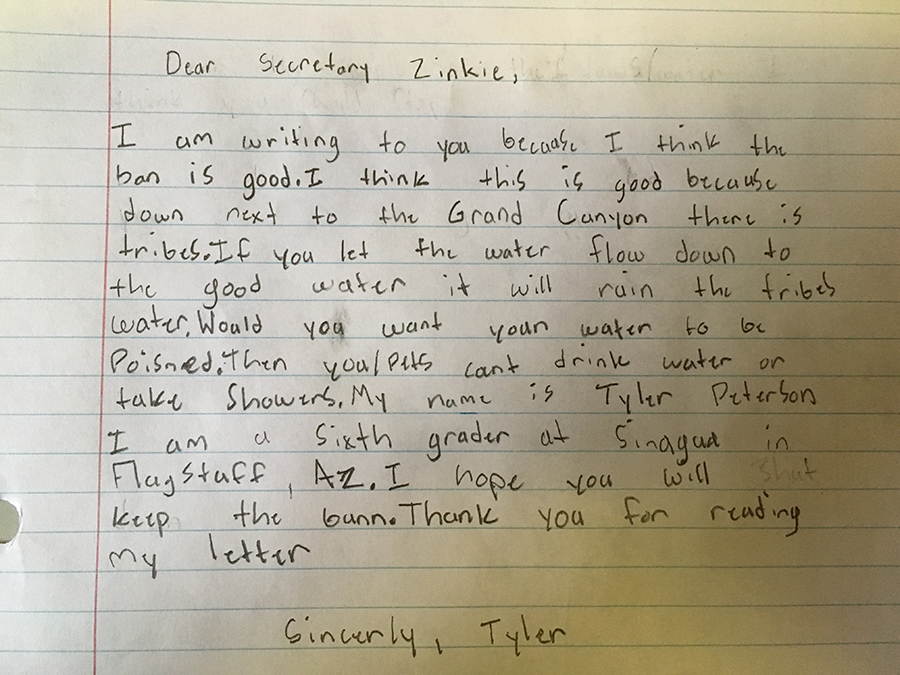 Dear Secretary Zinkie,
I am writing to you becuase I think the
ban is good. I think this is good because
down next to the Grand Canyon there is
tribes. If you let the water flow down to
the good water it will ruin the tribes
water. Would you want your water to be
Poisned. Then you/pets cant drink water or
take showers. My name is Tyler Peterson
I am a sixth grader at Sinagua in
Flagstaff, Az. I hope you will shut
keep the bann. Thank you for reading
my letter
Sincerly, Tyler